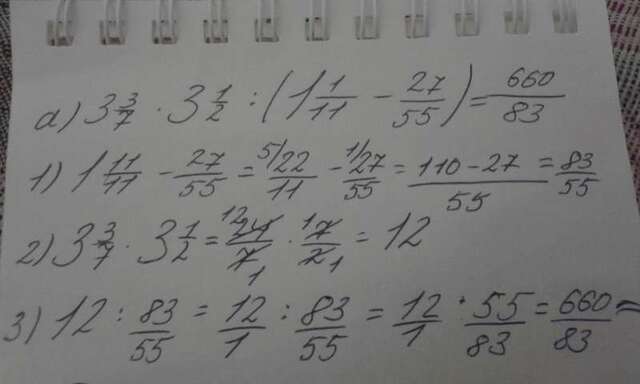 а) 3 3/7 · 3 1/2 : (1 1/11 − 27/55) = 660/83
1) 1 11/11 − 27/55 = 5/ 22/11 − 1/ 27/55 = 110−27/55 = 83/55
2) 3 3/7 · 3 1/2 = 12 24/7 1 · 1 7/2 1 = 12
3) 12 : 83/55 = 12/1 : 83/55 = 12/1 · 55/83 = 660/83 =